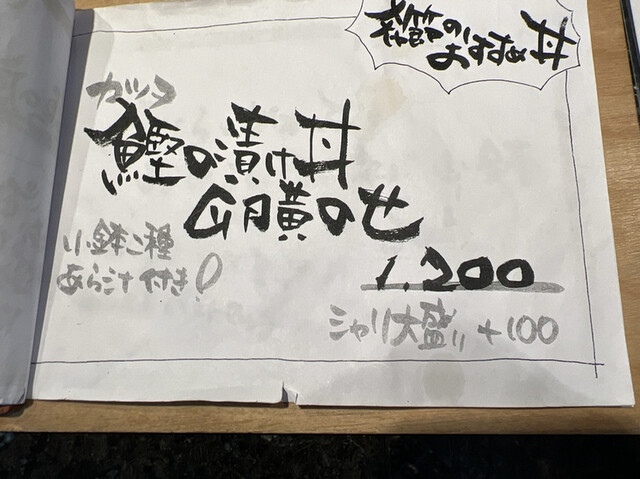 節の
おすすめ丼
カツヲ
鰹の漬け丼
卵黄のせ
小鉢二種
あら汁付き!
1,200
シャリ大盛り +100